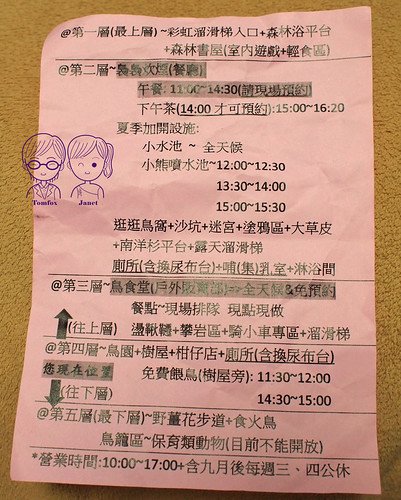 @第一層(最上層)~彩虹溜滑梯入口+森林浴平台
+森林書屋(室內遊戲+輕食區)
@第二層~裊裊炊煙(餐廳)
午餐: 11:00~14:30(請現場預約)
下午茶(14:00 才可預約):15:00~16:20
夏季加開設施:
小水池 ~ 全天候
小熊噴水池~12:00~12:30
13:30~14:00
15:00~15:30
逛逛鳥窩+沙坑+迷宮+塗鴉區+大草皮
+南洋杉平台+露天溜滑梯
廁所(含換尿布台)+哺(集)乳室+淋浴間
@第三層~鳥食堂(戶外販賣部)=>全天候&免預約
餐點~現場排隊 現點現做
(往上層) 盪鞦韆+攀岩區+騎小車專區+溜滑梯
@第四層~鳥園+樹屋+柑仔店+廁所(含換尿布台)
您現在位置 免費餵鳥(樹屋旁): 11:30~12:00
(往下層) 14:30~15:00
@第五層(最下層)~野薑花步道+食火鳥
鳥籠區~保育類動物(目前不能開放)
*營業時間:10:00~17:00+含九月後每週三、四公休
Tomfox Janet